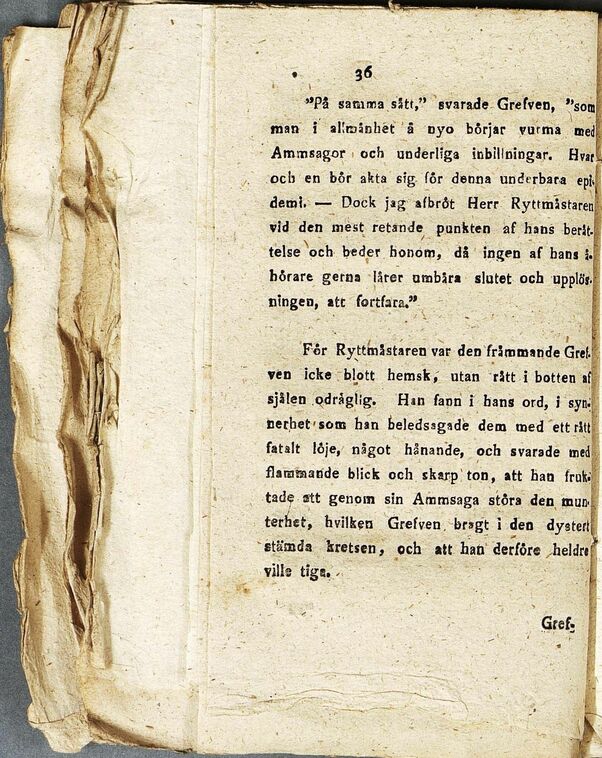 36
”På samma sått,” svarade Grefven, ”som
man i allmånhet å nyo börjar vurma med
Ammsagor och underliga inbillningar. Hvar
och en bör akta sig för denna underbara epi-
demi. — Dock jag afbröt Herr Ryttmåstaren
vid den mest retande punkten af hans beråt-
telse och beder honom, då ingen af hans å-
hörare gerna lårer umbåra slutet och upplös-
ningen, att fortfara.”
För Ryttmåstaren var den fråmmande Gref-
ven icke blott hemsk, utan rått i botten af
själen odråglig. Han fann i hans ord, i syn-
nerhet som han beledsagade dem med ett rått
fatalt löje, något hånande, och svarade med
flammande blick och skarp ton, att han fruk-
tade att genom sin Ammsaga störa den mun-
terhet, hvilken Grefven bragt i den dystert
stämda kretsen, och att han derföre heldre
ville tiga.
Gref-